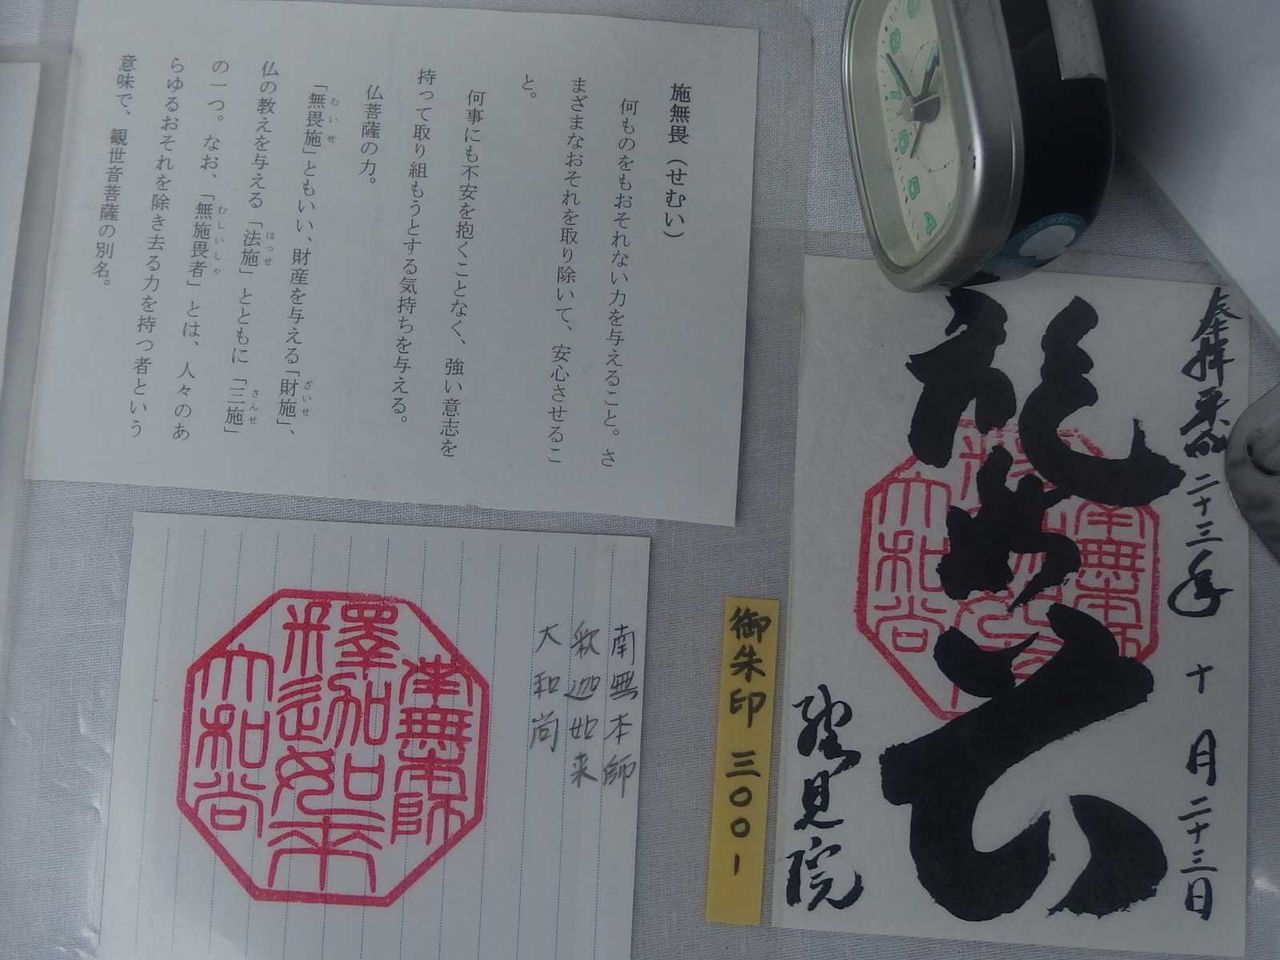 施無畏（せむい）
何ものをもおそれない力を与えること。さ
まざまなおそれを取り除いて、安心させるこ
と。
何事にも不安を抱くことなく、強い意志を
持って取り組もうとする気持ちを与える。
仏菩薩の力。
「無畏施」ともいい、財産を与える「財施」、
仏の教えを与える「法施」とともに「三施」
の一つ。なお、「無施畏者」とは、人々のあ
らゆるおそれを除き去る力を持つ者という
意味で、観世音菩薩の別名。
むいせ
ざいせ
ほっせ
さんせ
むしいしゃ
南無本師
釈迦如来
大和尚
南無本師
釋迦如来
大和尚
御朱印 三〇〇一
奉拝 平成二十三年 十月二十三日
龍如云
南無本師
大和尚
見院